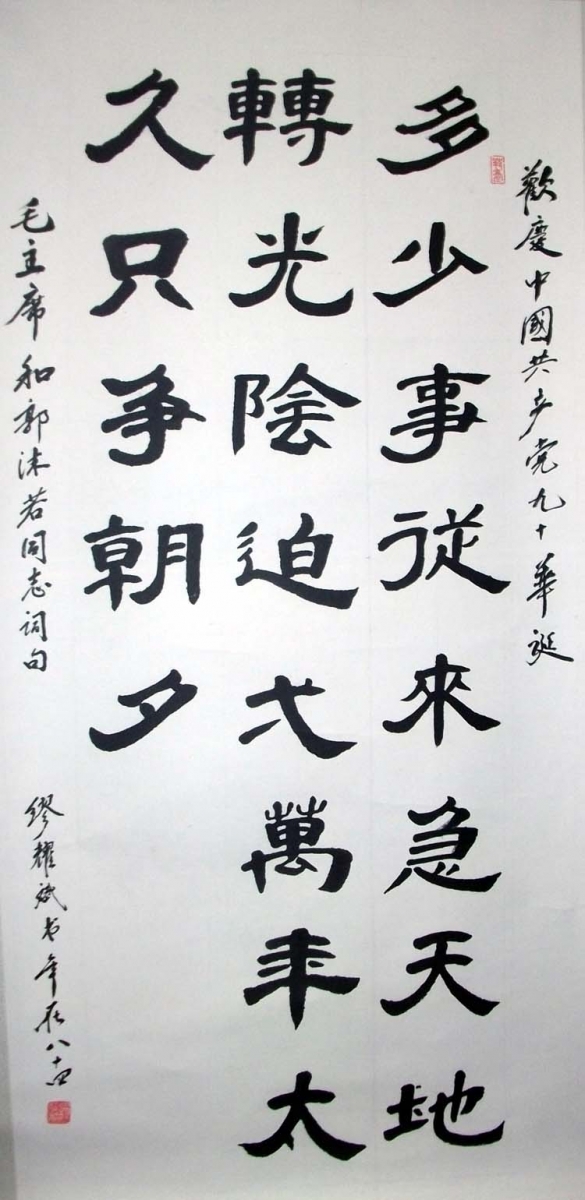 歡慶中國共产党九十華诞
多少事従來急天地
轉光陰迫弌萬年太
久只争朝夕
毛主席和郭沫若同志词句
繆耀斌书年在八十四